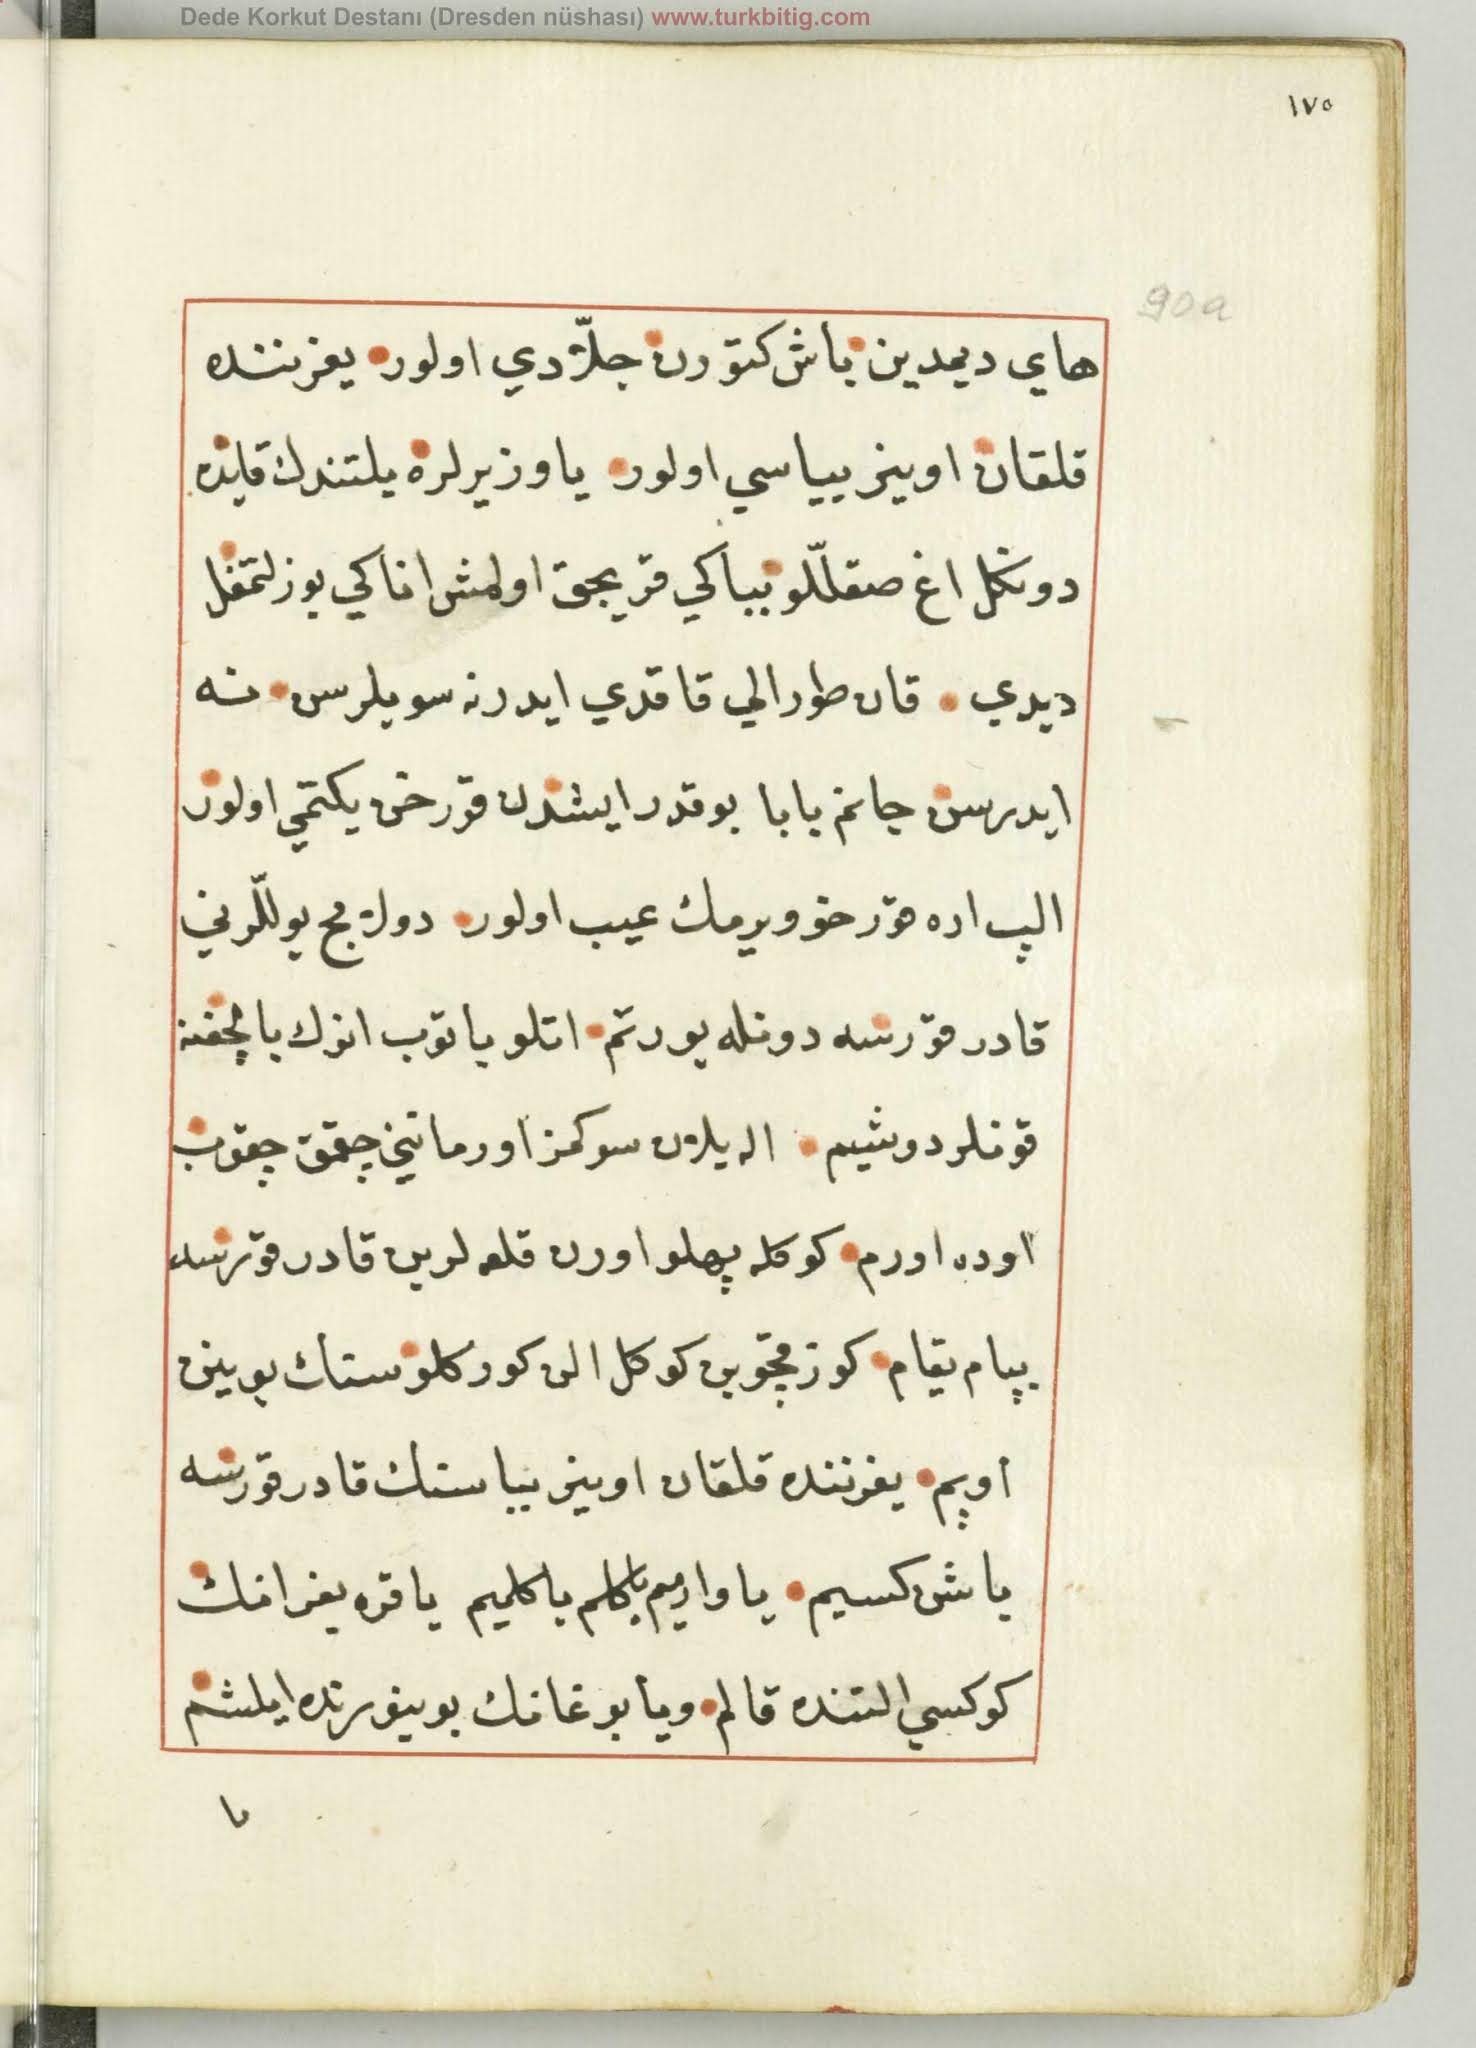 Dede Korkut Destanı (Dresden nüshası) www.turkbitig.com
١٧٥
90a
هاي ديمدين باش كتورن جلادي اولور يغرننده
قلقان اوينر يياسي اولور يا وزيرلره يلتندك قايده
دونكل اغ صقللّو بباكي قريجق اولمش اناكي بوزلتمغل
ديدي قان طورالي قاقدي ايدر نه سويلرسن نه
ايدرسن جانم بابا بو قدر ايشدن قورخن يكتمي اولور
الپ اره قورخو ويرمك عيب اولور دولمج يوللّرني
قادر قورسه دونله يورتم اتلو باتوب انوك بالچغنه
قوملر دوشيم اله يلان سوكمز اورمانني چقمق چقوب
اوده اورم كوكله پهلو اورن قلعه لرين قادر قورسه
ييام يقام كوز مچوين كوكل الن كوركلوسنك بوينن
اوپم يغرننده قلقان اوينر يياسنك قادر قورسه
باش كسيم يا واريم يا كلم يا كلميم يا قره بغرانك
كوكسي التنده قالم ويا بوغانك بوينوزنده ايلشم
يا